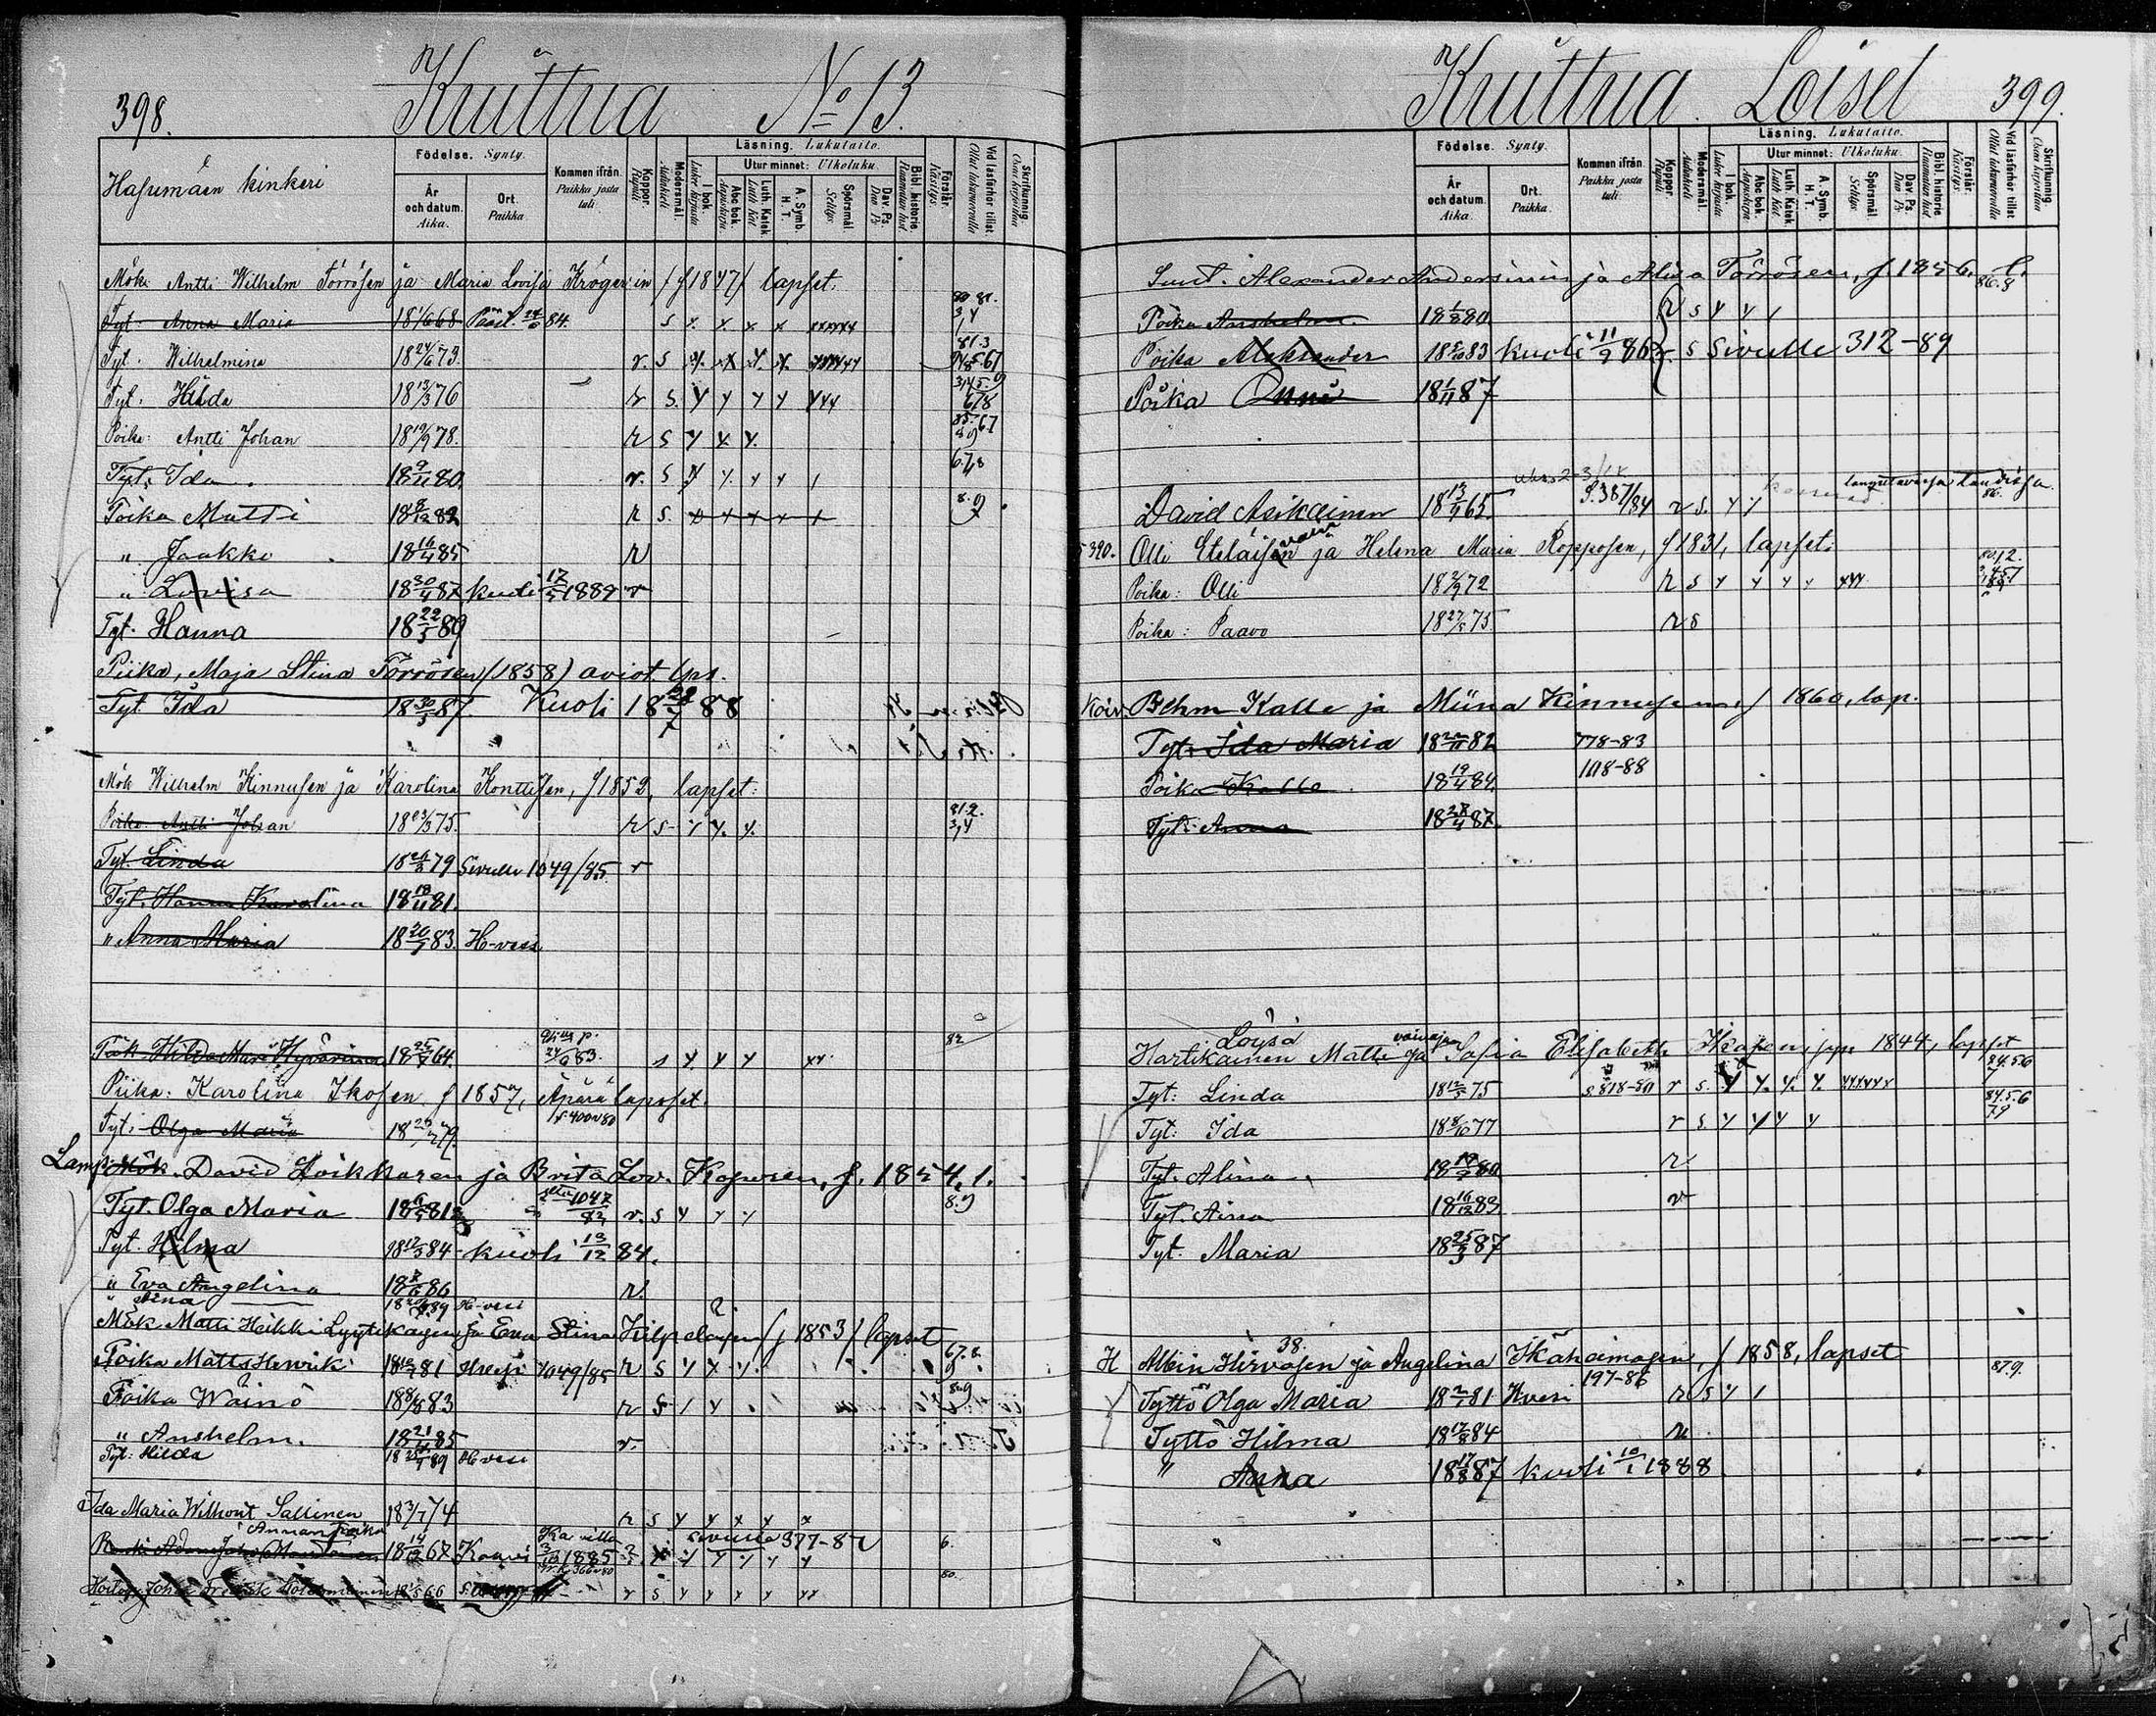 398. Kruttua No 13.
Hasumäen kinkeri
Födelse. Synty.
År och datum. Aika.
Ort. Paikka
Kommen ifrån. Paikka josta tuli.
Koppor. Rupuli
Modersmål. Äidinkieli
Läsning. Lukutaito.
I bok. Lukee kirjasta
Utur minnet: Ulkoluku.
Abc bok. Aapiskirja
Luth. Katek. Luth. Kat
A. Symb. H. T.
Spörsmål. Selitys.
Dav. Ps. Dav. Ps
Bibl. historie Raamatun hist.
Förstår. Käsitys.
Vid läsförhör tillst. Ollut lukuvuorolla
Skrifkunnig. Osaa kirjoittaa
Mök. Antti Wilhelm Törrösen ja Maria Lovisa Krögerin (f 1847) lapset.
Tyt: Anna Maria 18 68 84. s x x x x
Tyt. Wilhelmina 18 24/6 73. r. s
Tyt. Hilda 18 13/3 76 r s. y y y y yyy
Poika: Antti Johan 18 19/9 78. r s y x y.
Tyt. Ida. 18 9/11 80. r. s y y. y y 1
Poika Matti 18 8/12 82 r s. x x x x x
" Jaakko 18 16/4 85 r
" Lovisa 18 30/4 87 kuoli 17/5 1889 r
Tyt. Hanna 18 22/5 89
Piika, Maja Stina Törrösen (1858) aviot. lps.
Tyt. Ida 18 30/5 87. Kuoli 18 88
Mök Wilhelm Kinnusen ja Karolina Konttisen, f 1852, lapset:
Poika Antti Johan 18 23/3 75. r s y y. y.
Tyt. Linda 18 79 Sivulle 1049/85 r
Tyt. Hanna Karolina 18 18/11 81.
" Anna Maria 18 20/7 83. H-vesi
Hilda Mari Hyvärinen 18 25/7 64. 83. s y y y xx 82
Piika: Karolina Ikosen f 1857, Äpärä lapset.
Tyt: Olga Maria 18 79. s. 400 80
Lamp. Mök. David Loikkasen ja Brita Lov. Koposen, f. 1854, l.
Tyt. Olga Maria 18 81 1047/82 r. s y y y 8.9
Tyt. Hilma 18 12/3 84 kuoli 13/12 84.
" Eva Angelina 18 86 r.
" Aina 18 89 H-vesi
Mök Matti Heikki Lyytikäsen ja Eva Stina Kilpeläisen (f 1853) lapset
Poika Matts Henrik 18 81 1049/85 r s y x y. 67.8. 9
Poika Wäinö 18 83 r s 1 y 8.9
" Anshelm. 18 21/4 85 r.
Tyt: Hilda 18 89 H-vesi
Ida Maria Wilhont. Sallinen 18 3/7 74 r s y y x x x
Annan Poika
18 14/12 67 1885 sivulle 377-87 6.
18 66 r s y y x y yy
Kruttua. Loiset 399.
Födelse. Synty.
År och datum. Aika.
Ort. Paikka.
Kommen ifrån. Paikka josta tuli.
Koppor. Rupuli
Modersmål. Äidinkieli
Läsning. Lukutaito.
I bok. Lukee kirjasta
Utur minnet: Ulkoluku.
Abc bok. Aapiskirja
Luth. Katek. Luth. Kat
A. Symb. H. T.
Spörsmål. Selitys
Dav. Ps. Dav. Ps
Bibl. historie Raamatun hist.
Förstår. Käsitys
Vid läsförhör tillst. Ollut lukuvuorolla
Skrifkunnig. Osaa kirjoittaa
Suut. Alexander Andersinin ja Alina Törrösen, f. 1856. l.
Poika Anshelm 18 1/8 80. r s y y 1
Poika Aleksander 18 83 kuoli 11/9 86 r. s Sivulle 312-89
Poika Onni 18 1/11 87
David Asikainen 18 13/9 65. S. 387/84 r s. y y
S 390. Olli Eteläisen ja Helena Maria Ropposen, f 1831, lapset:
Poika: Olli 18 2/9 72 r s y y y y yyy
Poika: Paavo 18 27/5 75. r s
Koiv. Behm Kalle ja Miina Kinnusen, f 1860, lap.
Tyt. Ida Maria 18 82 778-83
Poika Kalle 18 19/4 84. 1118-88
Tyt: Anna 18 28/4 87.
Loisia
Hartikainen Matti ja Sofia Elisabeth 1844, lapset
Tyt: Linda 18 12/5 75 s. 818-80 r s. y y. y. y. 84.56
Tyt: Ida 18 8/10 77 r s y y y y 84.5.6 7.9
Tyt. Alina. 18 19/9 80 r
Tyt. Aina 18 16/12 83 r
Tyt. Maria 18 25/3 87
38.
H Albin Hirvosen ja Angelina Ikäheimosen, f 1858, lapset
Tyttö Olga Maria 18 2/7 81 Hvesi 197-86 r s y 1 87.9.
Tyttö Hilma 18 17/8 84 r
" Anna 18 17/8 87 kuoli 10/1 1888